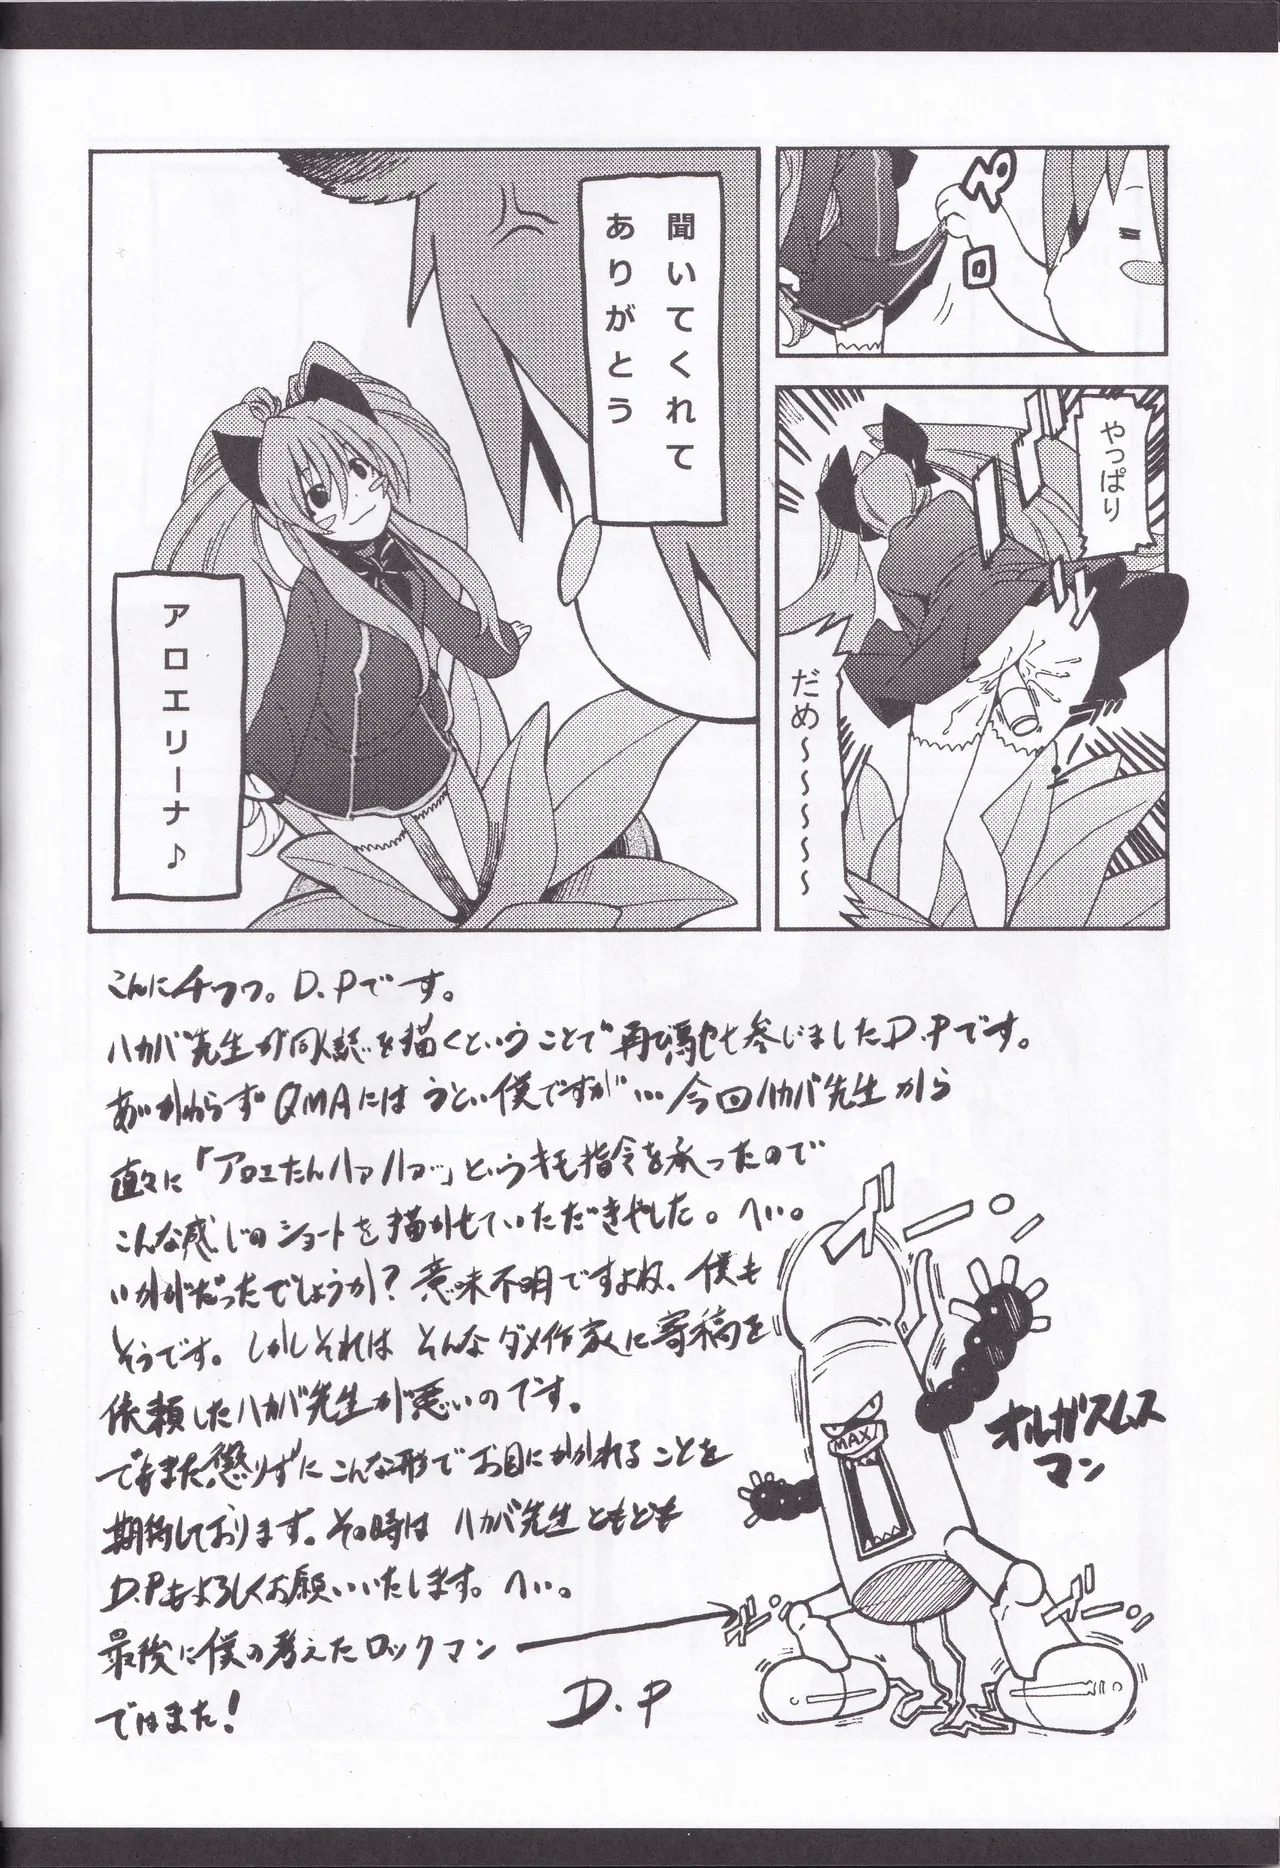 ペロ
やっぱり
だめ～～～～～
聞いてくれて
ありがとう
アロエリーナ♪
こんにチワワ。D.Pです。
ハカバ先生が同人誌を描くということで再び馳せ参じましたD.Pです。
あいかわらずQMAにはうとい僕ですが…今回ハカバ先生から
直々に「アロエたんハァハァ」というキモ指令を承ったので
こんな感じのショートを描かせていただきやした。へい。
いかがだったでしょうか?意味不明ですよね、僕も
そうです。しかしそれはそんなダメ作家に寄稿を
依頼したハカバ先生が悪いのです。
でもまた懲りずにこんな形でお目にかかれることを
期待しております。その時はハカバ先生ともども
D.Pもよろしくお願いいたします。へい。
最後に僕の考えたロックマン
ではまた!
D.P
MAX
オルガスムス
マン